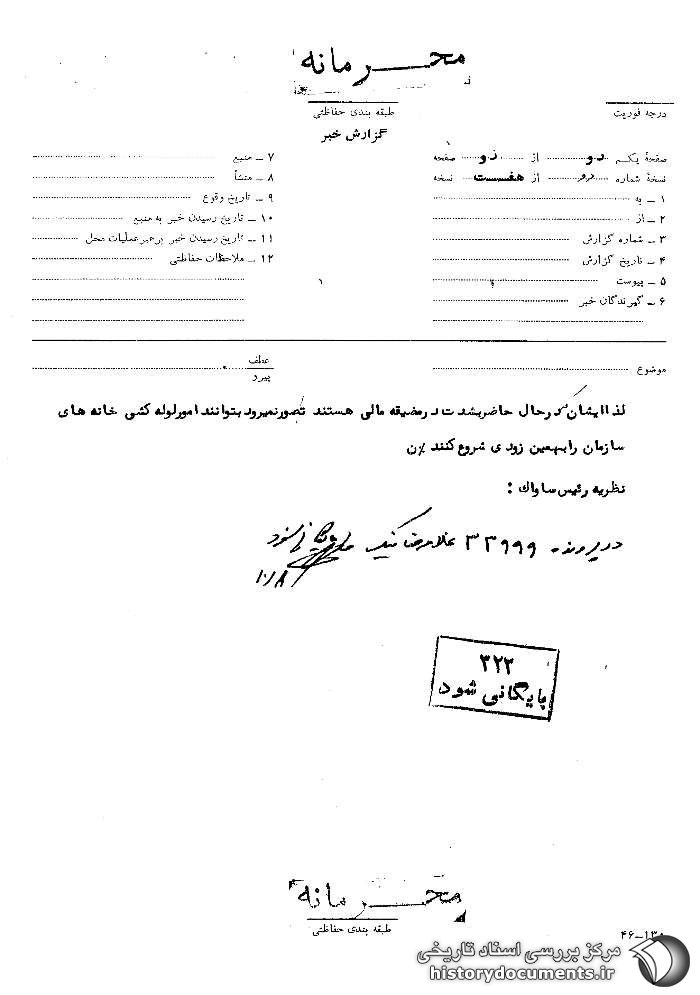 محرمانه
طبقه بندی حفاظتی
درجه فوریت
گزارش خبر
صفحهٔ یکم دو از دو صفحه
نسخهٔ شماره دو از هفتت نسخه
۱ ـ به
۲ ـ از
۳ ـ شماره گزارش
۴ ـ تاریخ گزارش
۵ ـ پیوست
۶ ـ گیرندگان خبر
۷ ـ منبع
۸ ـ منشأ
۹ ـ تاریخ وقوع
۱۰ ـ تاریخ رسیدن خبر به منبع
۱۱ ـ تاریخ رسیدن خبر برهبرعملیات محل
۱۲ ـ ملاحظات حفاظتی
موضوع
عطف
پیرو
لذا ایشان که در حال حاضر بشدت در مضیقه مالی هستند تصور نمیرود بتوانند امور لوله کشی خانه های
سازمان را بهمین زودی شروع کنند ن
نظریه رئیس ساواک :
در پرونده ۳۳۹۹۹ غلامرضا بایگانی شود
۱۰/۸
۳۲۲
بایگانی شود
محرمانه
طبقه بندی حفاظتی
مرکز بررسی اسناد تاریخی
historydocuments.ir